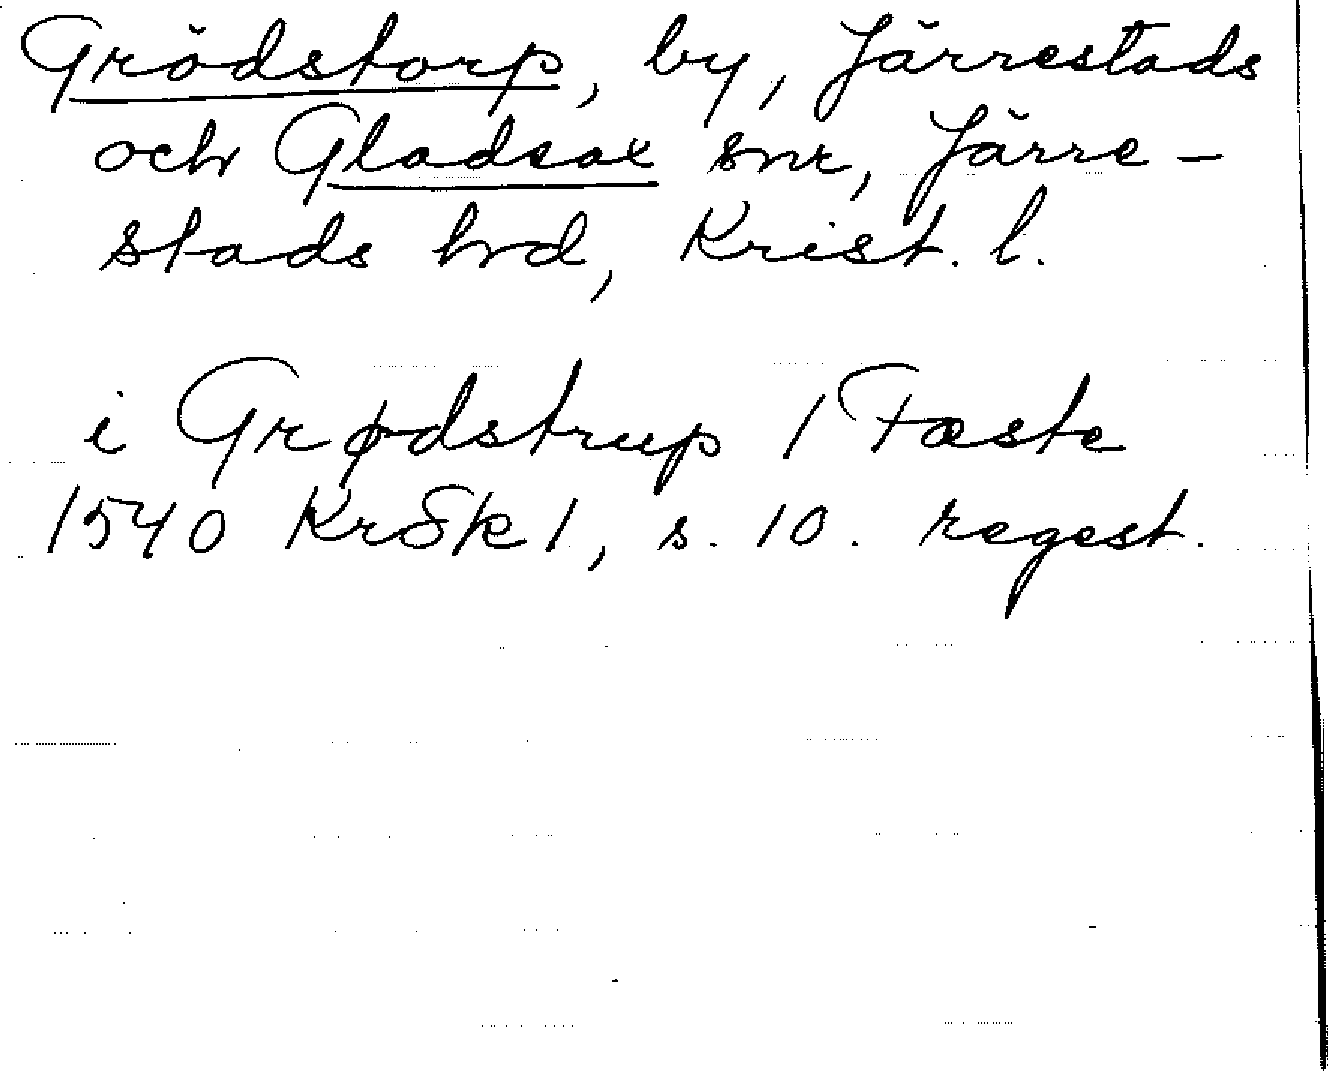 Grödstorp, by, Järrestads
och Gladsax snr, Järre-
stads hrd, Krist. l.
i Grødstrup 1 Fæste
1540 KrSk 1, s. 10. regest.